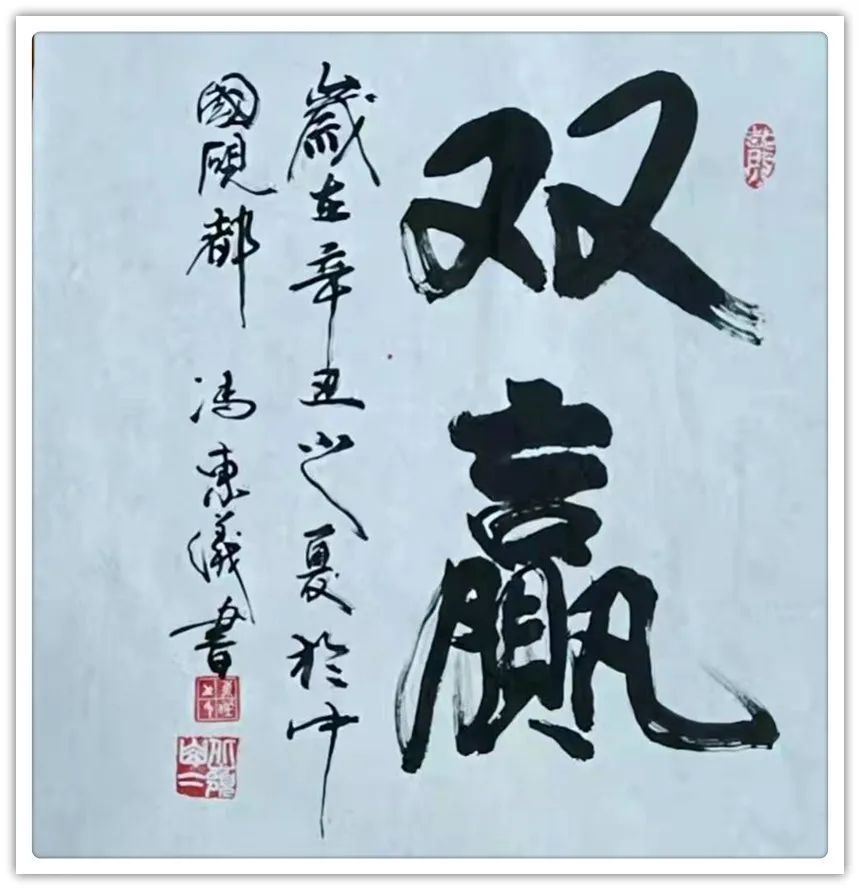 双赢
歲在辛丑之夏於中
國硯都 冯東義書